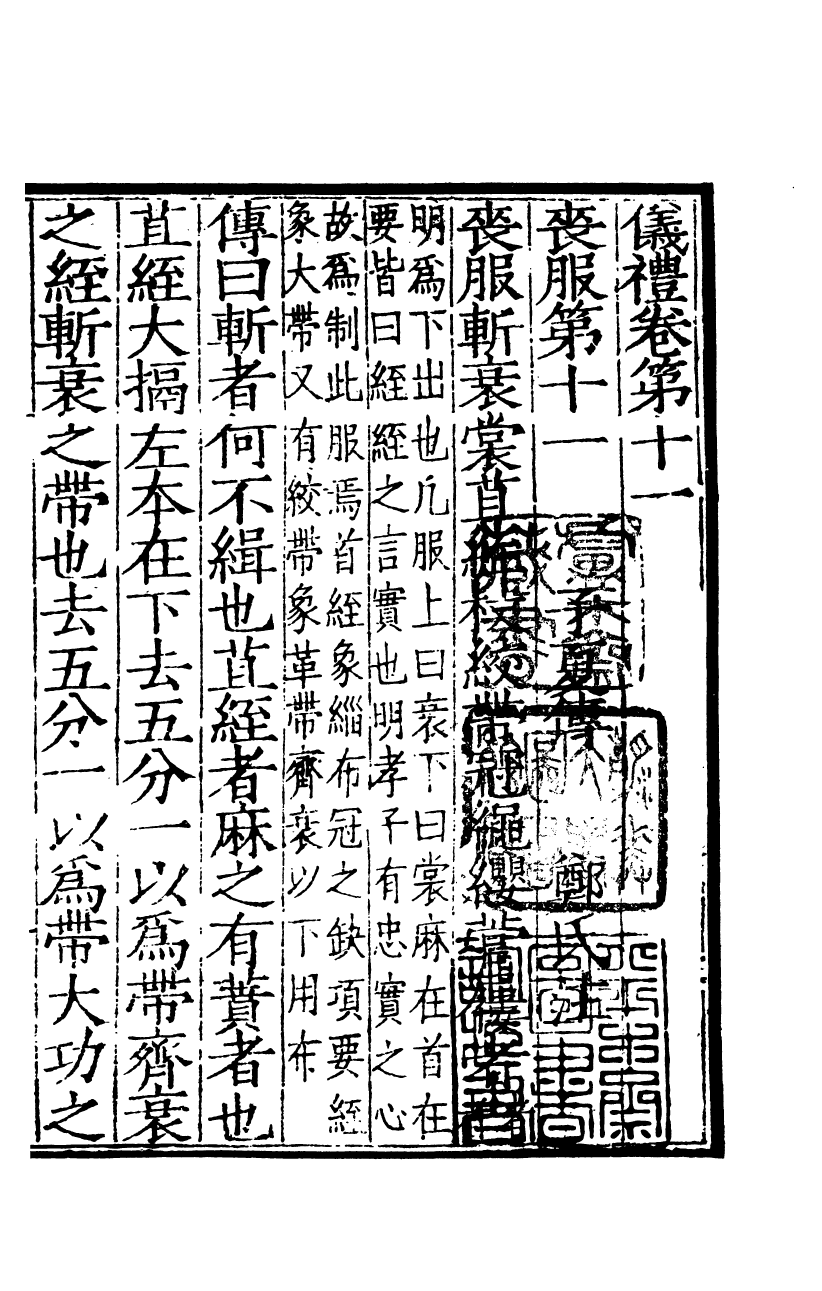 儀禮卷第十一
喪服第十一　子夏傳　鄭氏注
喪服斬衰裳苴絰杖絞帶冠繩纓菅屨者者
明爲下出也凡服上曰衰下曰裳麻在首在
要皆曰絰絰之言實也明孝子有忠實之心
故爲制此服焉首絰象緇布冠之缺項要絰
象大帶又有絞帶象革帶齊衰以下用布
傳曰斬者何不緝也苴絰者麻之有蕡者也
苴絰大搹左本在下去五分一以爲帶齊衰
之絰斬衰之帶也去五分一以爲帶大功之